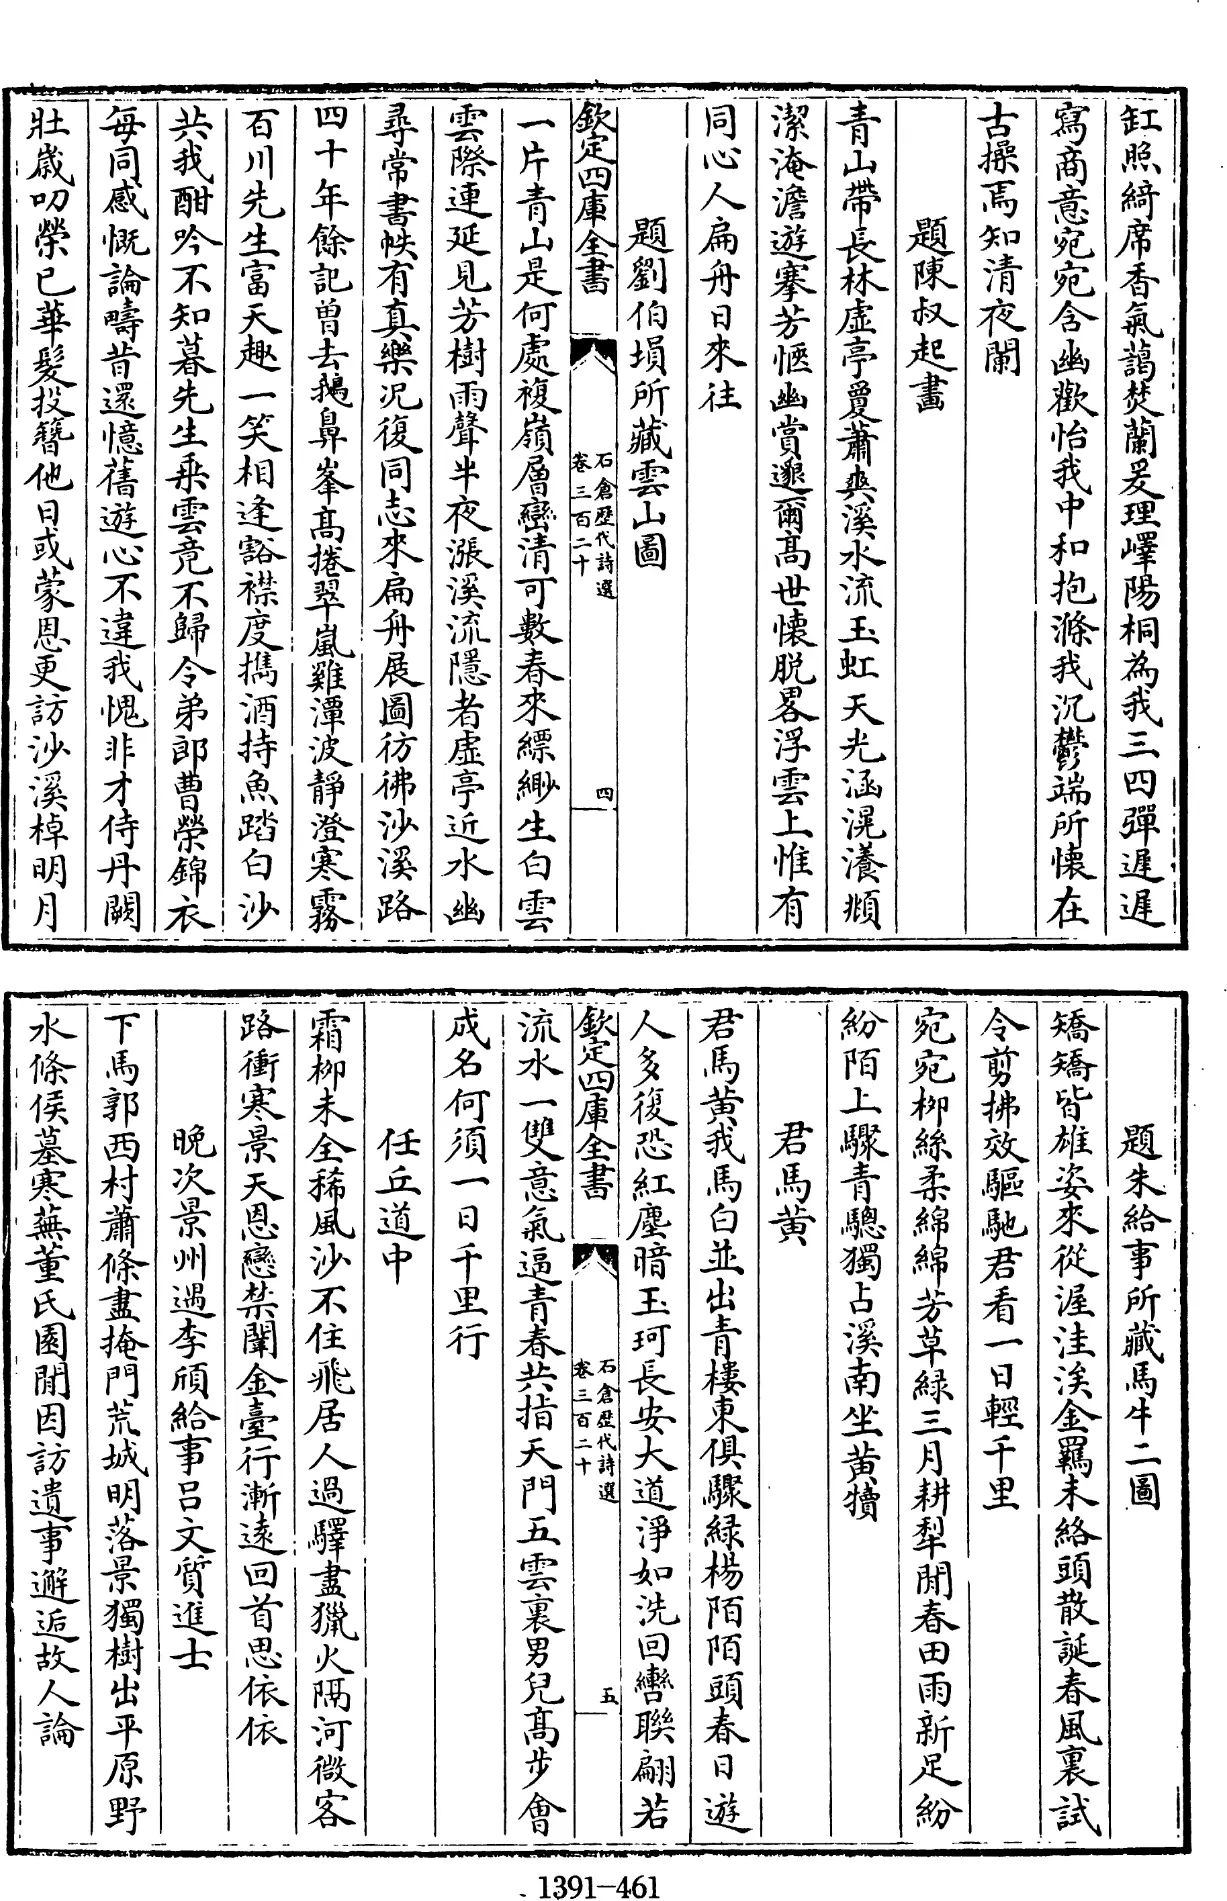 缸照綺席香氣藹焚蘭爰理嶧陽桐為我三四彈遲遲
寫商意宛宛含幽歡怡我中和抱滌我沉鬱端所懷在
古操焉知清夜闌
題陳叔起畫
青山帶長林虛亭夐蕭爽溪水流玉虹天光涵滉瀁頫
潔淹澹遊搴芳愜幽賞邈爾高世懷脫畧浮雲上惟有
同心人扁舟日來往
題劉伯塤所藏雲山圖
欽定四庫全書
石倉歷代詩選
卷三百二十
四
一片青山是何處複嶺層巒清可數春來縹緲生白雲
雲際連延見芳樹雨聲半夜漲溪流隱者虛亭近水幽
尋常書帙有真樂况復同志來扁舟展圖彷彿沙溪路
四十年餘記曾去鵝鼻峯高捲翠嵐雞潭波靜澄寒霧
百川先生富天趣一笑相逢豁襟度攜酒持魚踏白沙
共我酣吟不知暮先生乘雲竟不歸令弟郎曹榮錦衣
每同感慨論疇昔還憶舊遊心不違我愧非才侍丹闕
壯歳叨榮已華髮投簪他日或蒙恩更訪沙溪棹明月
題朱給事所藏馬牛二圖
矯矯皆雄姿來從渥洼涘金羈未絡頭散誕春風裏試
令剪拂效驅馳君看一日輕千里
宛宛柳絲柔綿綿芳草緑三月耕犁閒春田雨新足紛
紛陌上驟青驄獨占溪南坐黄犢
君馬黄
君馬黄我馬白並出青樓東俱驟緑楊陌陌頭春日遊
人多復恐紅塵暗玉珂長安大道淨如洗回轡聯翩若
欽定四庫全書
石倉歷代詩選
卷三百二十
五
流水一雙意氣逼青春共指天門五雲裏男兒高步會
成名何須一日千里行
任丘道中
霜柳未全稀風沙不住飛居人過驛盡獵火隔河微客
路衝寒景天恩戀禁闈金臺行漸遠回首思依依
晚次景州遇李頎給事吕文質進士
下馬郭西村蕭條盡掩門荒城明落景獨樹出平原野
水條侯墓寒蕪董氏園閒因訪遺事邂逅故人論
1391-461